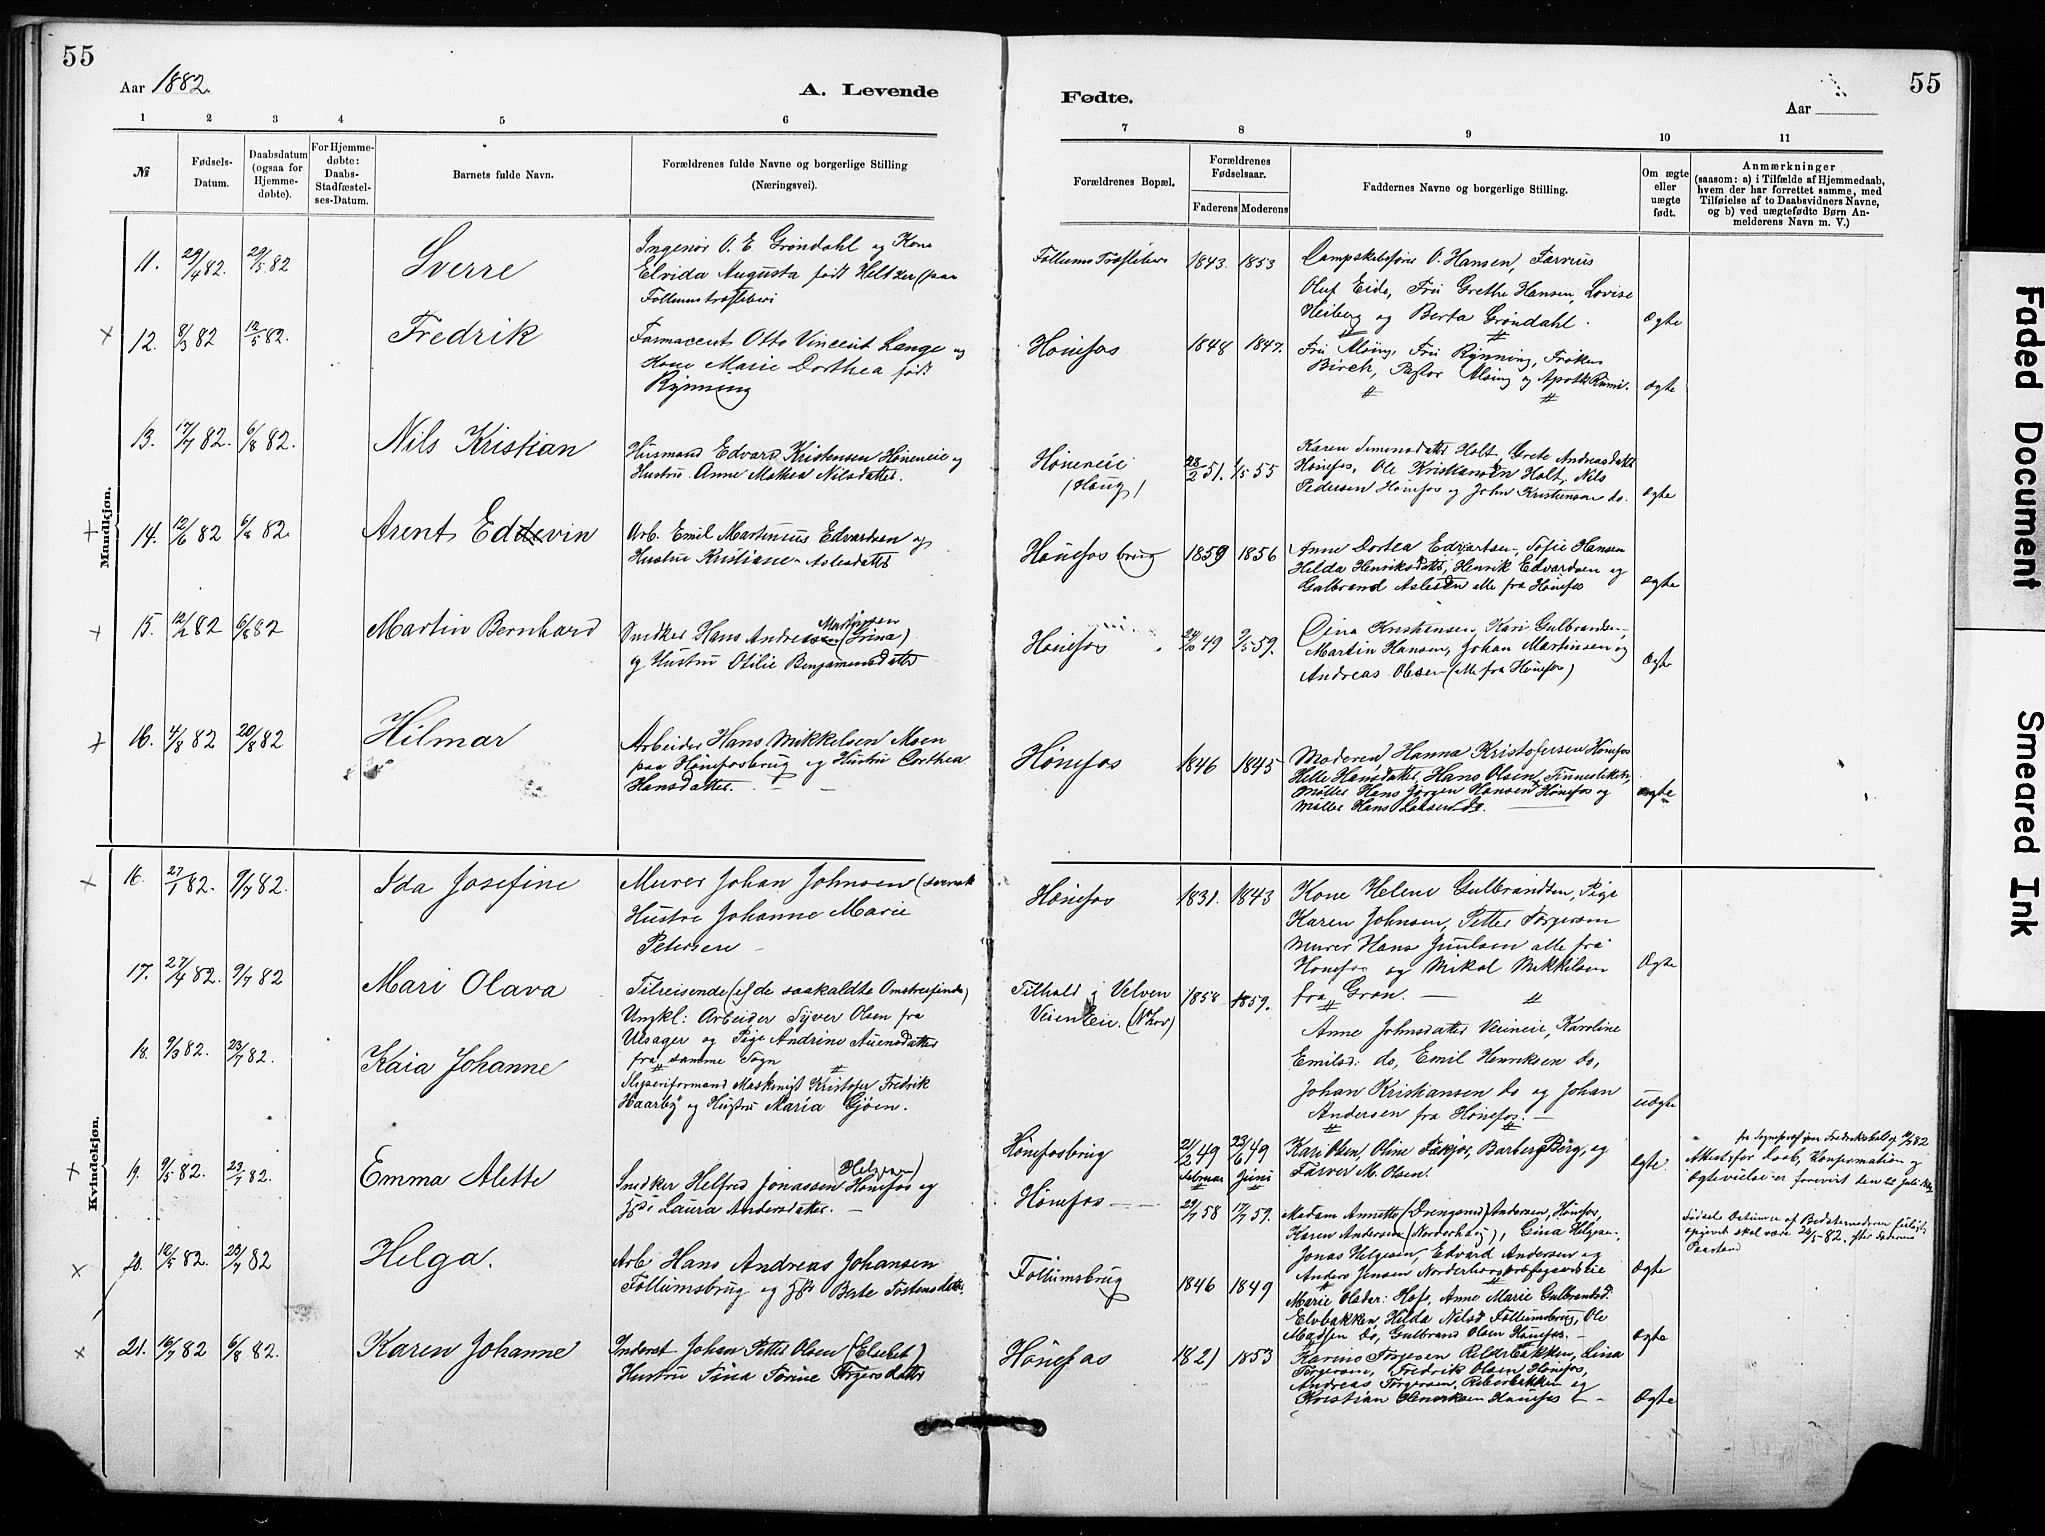 55
Aar 1882.
A. Levende
1 2 3 4 5 6
№
Fødsels-
Datum.
Daabsdatum
(ogsaa for
Hjemme-
døbte).
For Hjemme-
døbte:
Daabs-
Stadfæstel-
ses-Datum.
Barnets fulde Navn.
Forældrenes fulde Navne og borgerlige Stilling
(Næringsvei).
Mandkjøn.
11. 29/4 82. 29/5 82 Sverre
Ingeniør O. E. Grøndahl og Kone
Elvida Augusta født Heltzer (paa
Follumstræsliberi
12. 8/3 82 12/5 82. Fredrik
Farmaceut Otto Vincent Lange og
Kone Marie Dorthea født
Rynning
13. 17/7 82. 6/8 82. Nils Kristian
Husmand Edvard Kristensen Høneneie og
Hustru Anne Mathea Nilsdatter.
14. 12/6 82 6/8 82. Arent Edevin
Arb. Emil Martenius Edvardsen og
Hustru Kristiane Aslesdatter
15. 12/2 82 6/8 82 Martin Bernhard
Martinsen
Snedker Hans Andreassen (Grina)
og Hustru Otilie Benjamensdatter
16. 4/8 82 20/8 82 Hilmar
Arbeider Hans Mikkelsen Moen
paa Hønefosbrug og Hustru Dorthea
Hansdatter.
Kvindekjøn.
16. 27/1 82. 9/7 82. Ida Josefine
Murer Johan Johnsen (svensk
Hustru Johanne Marie
Petersen
17. 27/4 82. 9/7 82 Mari Olava
Tilreisende (af de saakaldte Omstreifende)
Umkl: Arbeider Syver Olsen fra
Ulsager og Pige Andrine Auensdatter
fra samme Sogn
18. 9/3 82. 23/7 82. Kaia Johanne
Slyseriformand Maskinist Kristofer Fredrik
Haarby og Hustru Maria Gjøen.
19. 9/5 82. 23/7 82. Emma Alette
(Helgesen)
Snedker Helfred Jonassen Hønefos og
Laura Andersdatter.
20. 12/5 82. 23/7 82 Helga.
Arb. Hans Andreas Johansen
Follumsbrug og Berte Tostensdatter.
21. 16/7 82 6/8 82. Karen Johanne
Inderst Johan Petter Olsen (Eliebet)
Hustru Tina Torine Torgersdatter
55
Fødte.
Aar
7 8 9 10 11
Forældrenes Bopæl.
Forældrenes
Fødselsaar.
Faderens Moderens
Faddernes Navne og borgerlige Stilling.
Om ægte
eller
uægte
født.
Anmærkninger
(saasom: a) i Tilfælde af Hjemmedaab,
hvem der har forrettet samme, med
Tilføielse af to Daabsvidners Navne,
og b) ved uægtefødte Børn An-
melderens Navn m. V.)
Follums Træsliberi 1843. 1853
Dampskibsfører O. Hansen,
Oluf Eide, Fru Grethe Hansen, Lovise
Heiberg og Berta Grøndahl. Ægte
Hønefos 1848 1847.
Fru Alsing, Fru Rynning, Frøken
Birch, Pastor Alsing og Apoth. ægte
Høneneie
(Houg)
28/2 51. 1/5 55
Karen Simensdatter Holt, Grete Andreasdatt
Hønefos, Ole Kristiansen Holt, Nils
Pedersen Hønefos og John Kristensen do. ægte
Hønefos brug 1859 1856
Anne Dortea Edvartsen, Sofie Hansen
Hilda Henriksdatter, Henrik Edvardsen og
Gulbrand Aslesen alle fra Hønefos ægte
Hønefos 24/10 49 9/5 59.
Dina Kristensen, Kari Gulbrandsen,
Martin Hansen, Johan Martinsen og
Andreas Olsen (alle fra Hønefos) Ægte
Hønefos 1846 1845
Moderen, Hanna Kristofersen Hønefos
Helle Hansdatter, Hans Olsen,
Møller Hans Jørgen Hansen Hønefos og
Møller Hans Larsen do. ægte
Hønefos 1831. 1843
Kone Helene Gulbrandsen, Pige
Karen Johnsen, Petter Torgersen
Murer Hans Juulsen alle fra
Hønefos og Mikal Mikkelsen
fra Gran. Ægte
Tilhold i Velven
Veieneie. (N.hov)
1858 1859.
Anne Johnsdatter Veieneie, Karoline
Emilsd: do, Emil Henriksen do,
Johan Kristiansen do og Johan
Andersen fra Hønefos. uægte
Hønefosbrug 21/2 49 23/6 49
Februar Juni
Kari Olsen, Oline Barberg Berg, og
Farver M. Olsen. ægte.
fra Sogneprest
Attest for Daab, Konfirmation og
Ægtevielse er forevist den 22 Juli 1882
Hønefos 29/7 58 17/7 59.
Madam Annette (Drengsrud) Andersen, Hønefos,
Karen Andersen (Norderhoug), Gina Helgesen,
Jonas Helgesen, Edvard Andersen og
Anders Jensen Ægte
Fødsels Datumen af Bedstemoderen feilagtigt
opgivet skal være 26/5 82. efter Faderens
Paastand
Follumsbrug 1846 1849
Marie Olsdtr: Hofs, Anne Marie Gulbrandsd.
Elvbakken, Hilda Nilsd Follumsbrug, Ole
Madsen do, Gulbrand Olsen Hønefos. Ægte
Hønefos 1821 1853
Karine Torgersen, Lina
Torgersen, Fredrik Olsen Hønefos,
Andreas Torgersen, og
Kristian Henriksen Hønefos Ægte
Faded Document
Smeared Ink